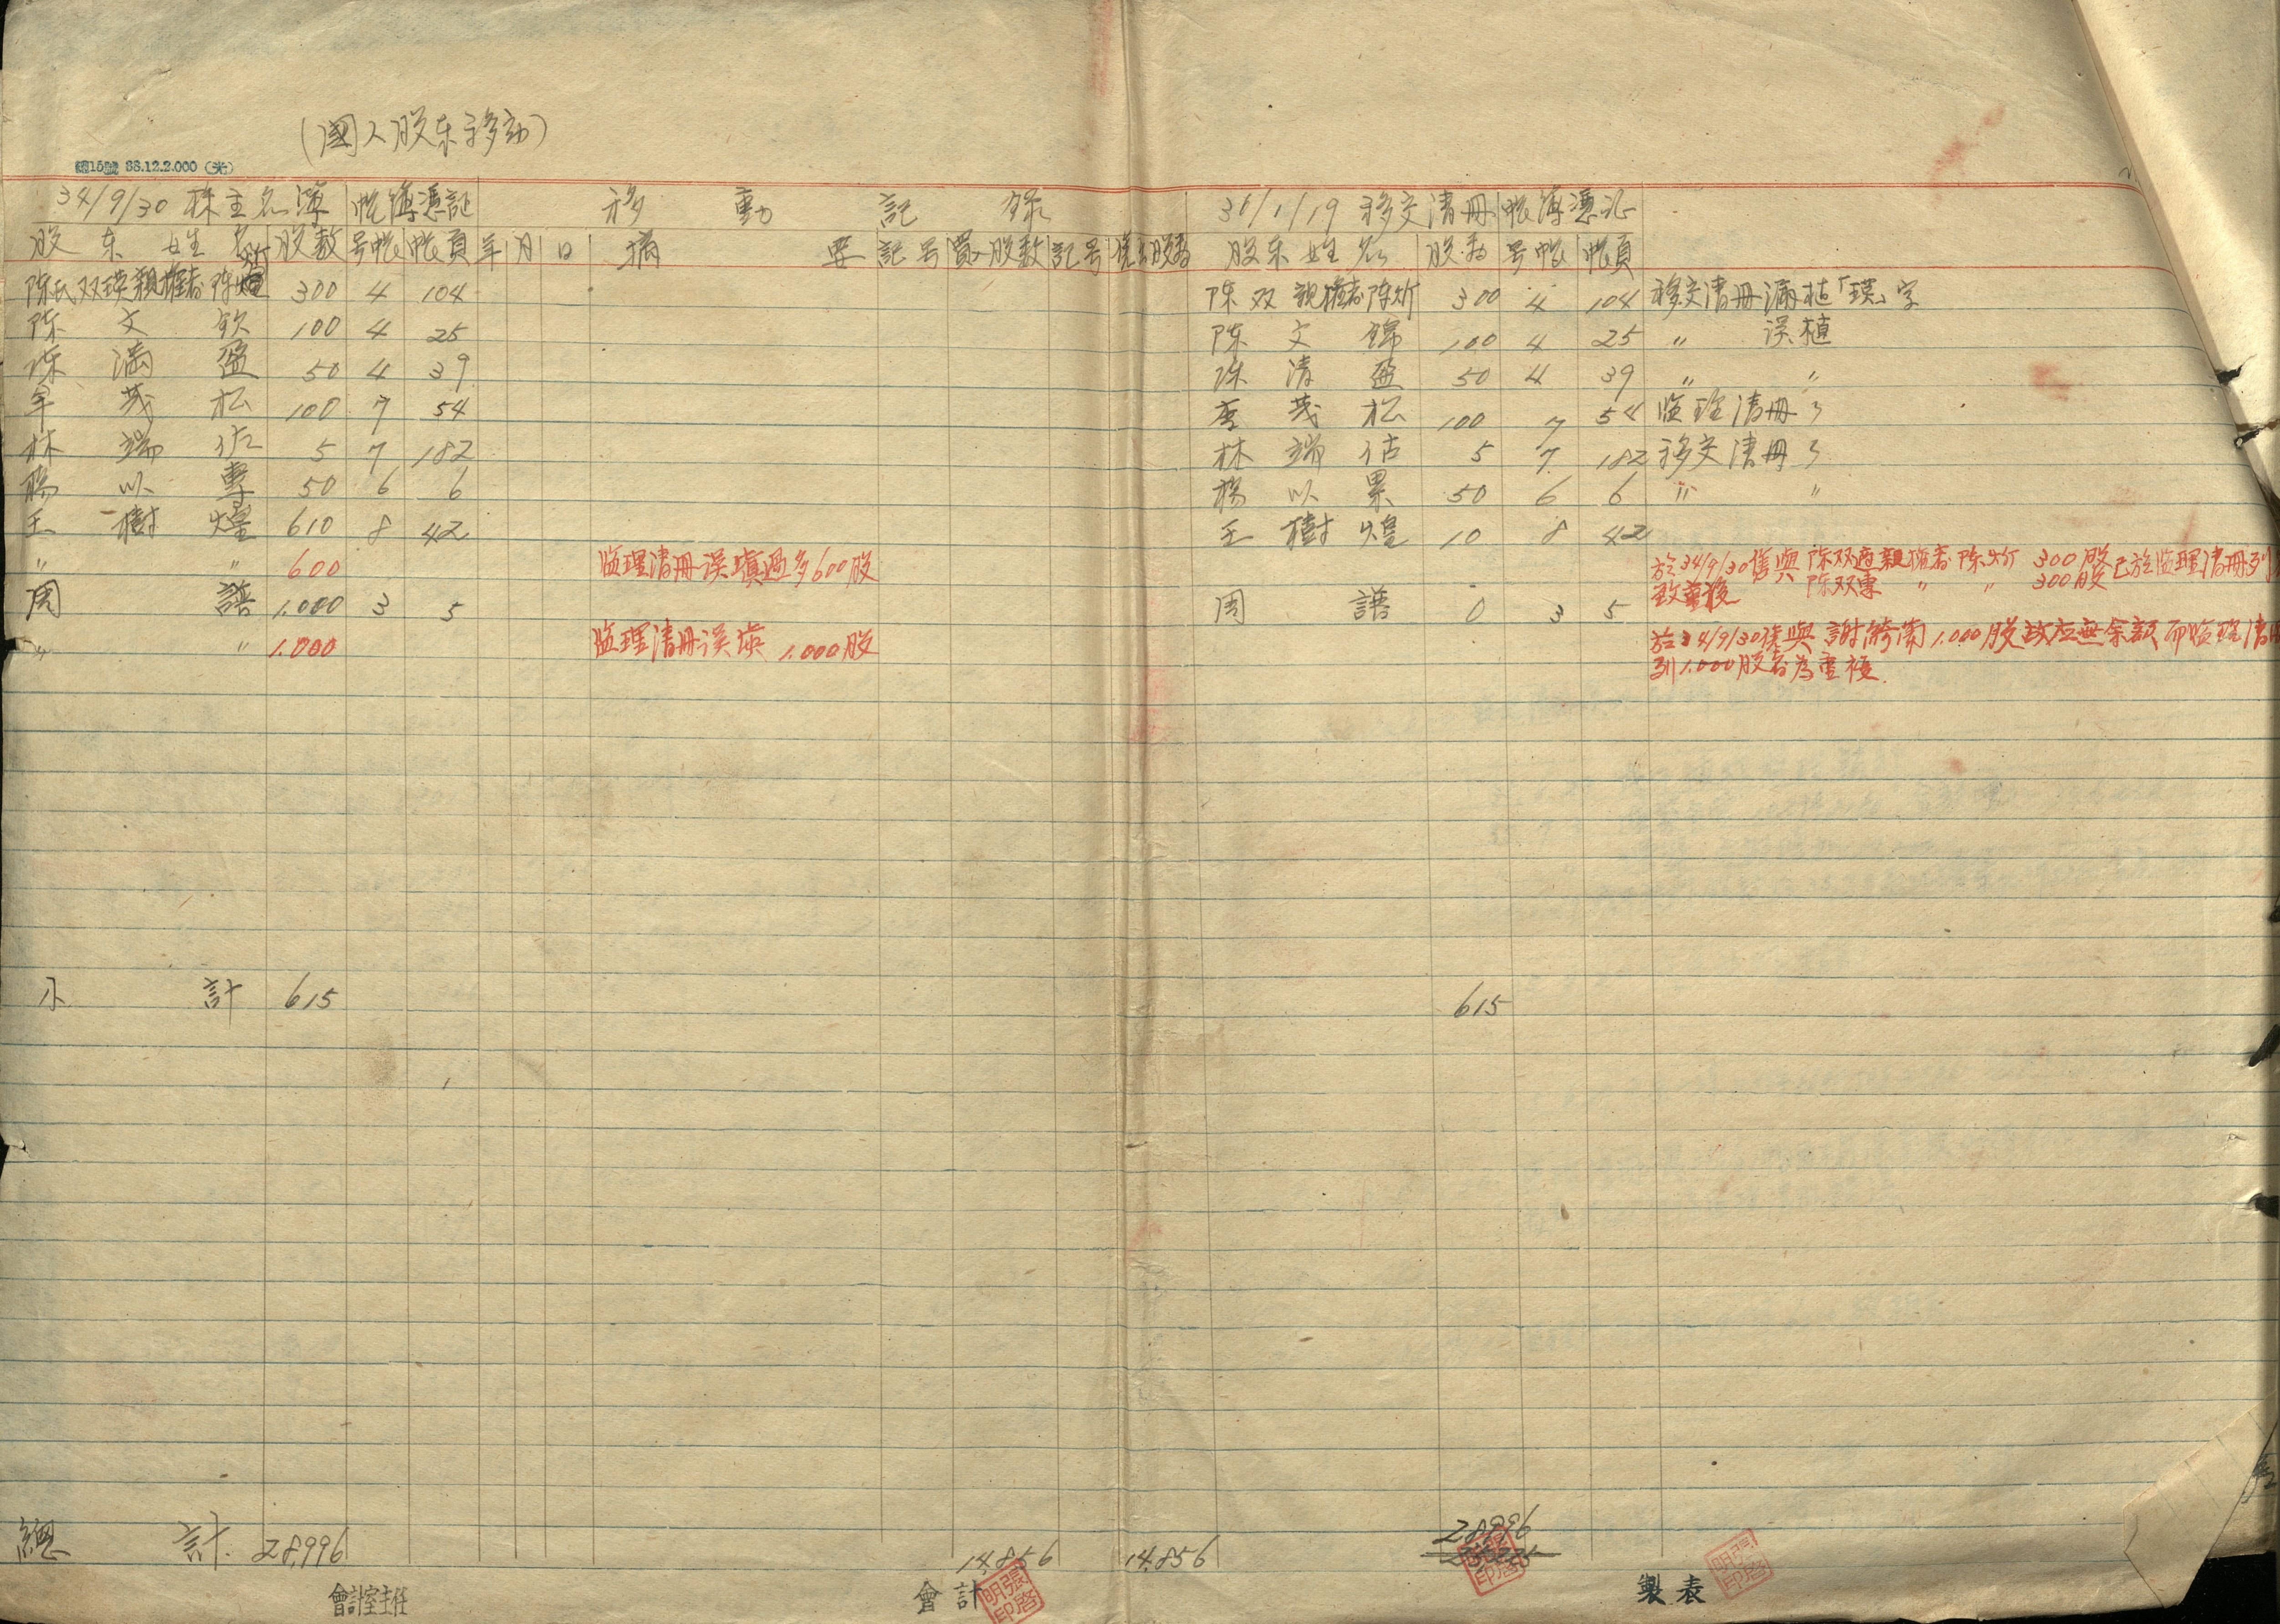 (國人股东移动)
38.12.2.000
34/9/30 株主名簿 帐簿憑証 移動記錄 36/1/19 移交清冊 帐簿憑証
股东姓名 股数 号帐 帐頁 年 月 日 摘要 記号 買入股数 記号 股数 股东姓名 股数 号帐 帐頁
陈氏双瑛親權者陈炘 300 4 104 陈双 親權者陈炘 300 4 104 移交清冊漏植「瑛」字
陈文欽 100 4 25 陈文錦 100 4 25 〃 誤植
陈満盈 50 4 39 陈清盈 50 4 39 〃 〃
茂松 100 7 54 李茂松 100 7 54 监理清冊 〃
林端佐 5 7 182 林端估 5 7 182 移交清冊 〃
楊以專 50 6 6 楊以累 50 6 6 〃 〃
王樹煌 610 8 42 王樹煌 10 8 42
〃 〃 600 监理清冊误填過多600股 於34/9/30售與 陈双適親權者陈炘 300股已於监理清冊列
陈双專 〃 〃 300股
周譜 1.000 3 5 周譜 0 3 5
〃 〃 1.000 监理清冊误填 1.000股 於34/9/30售與 謝綺蘭1.000股故应無余額而监理清冊
列1.000股者為重複.
小計 615 615
總計 28,996 14,856 14,856 28,996
會計室主任 會計 張啓明印 張啓明印 製表 張啓明印